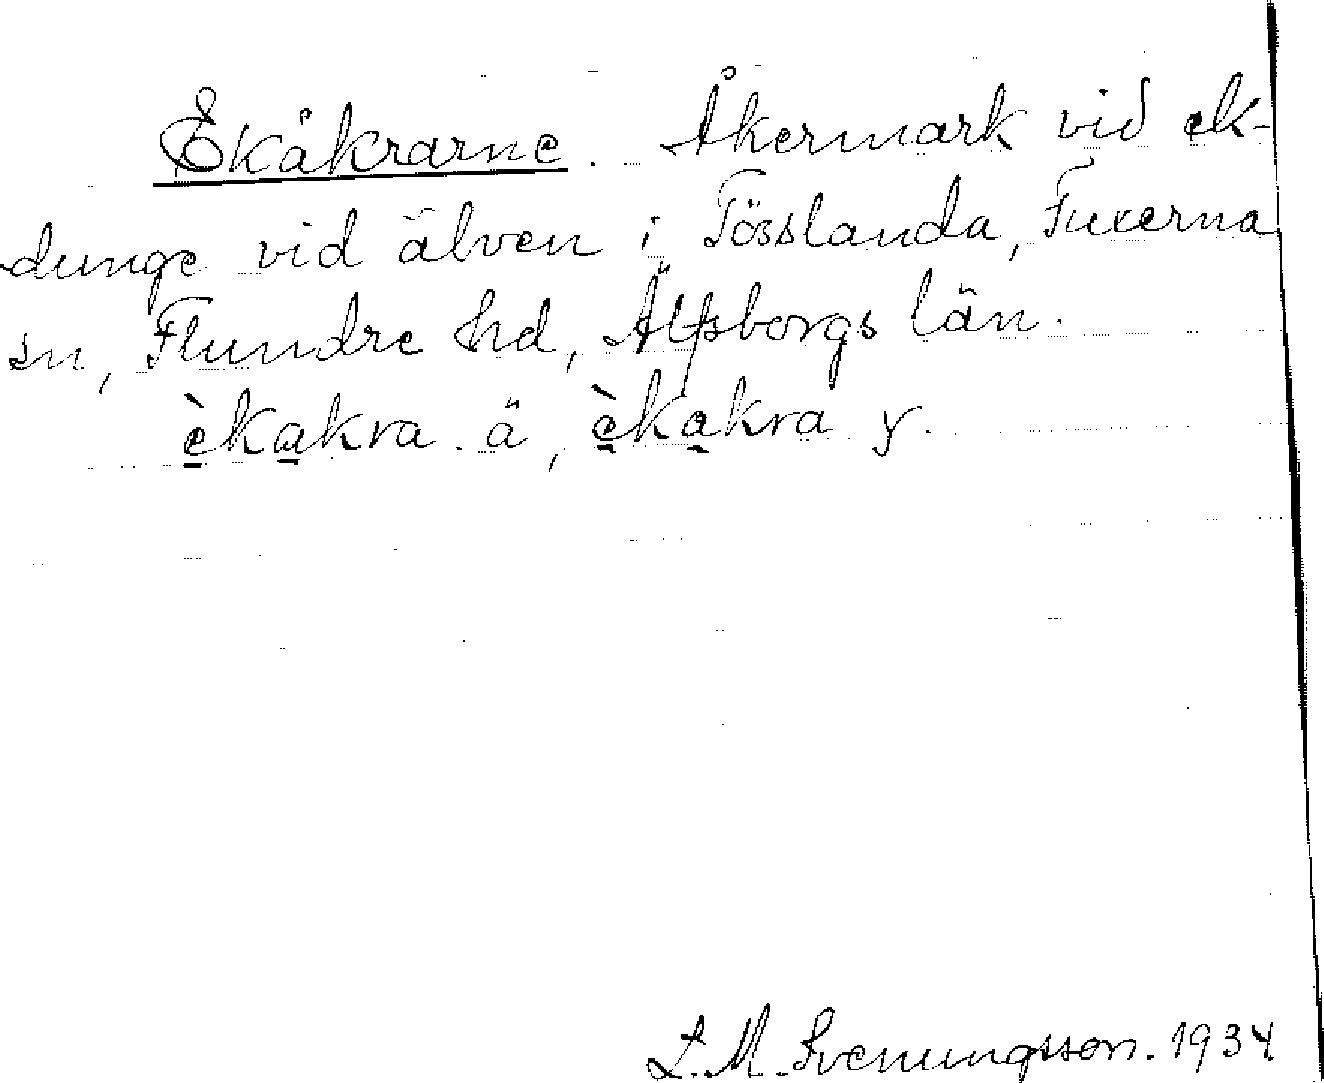 Ekåkrarne. Åkermark vid ek-
dunge vid älven i Tösslanda, Fuxerna
sn, Flundre hd, Älfsborgs län.
èkakra ä, èkakra y.
L. M. Svenungsson. 1934